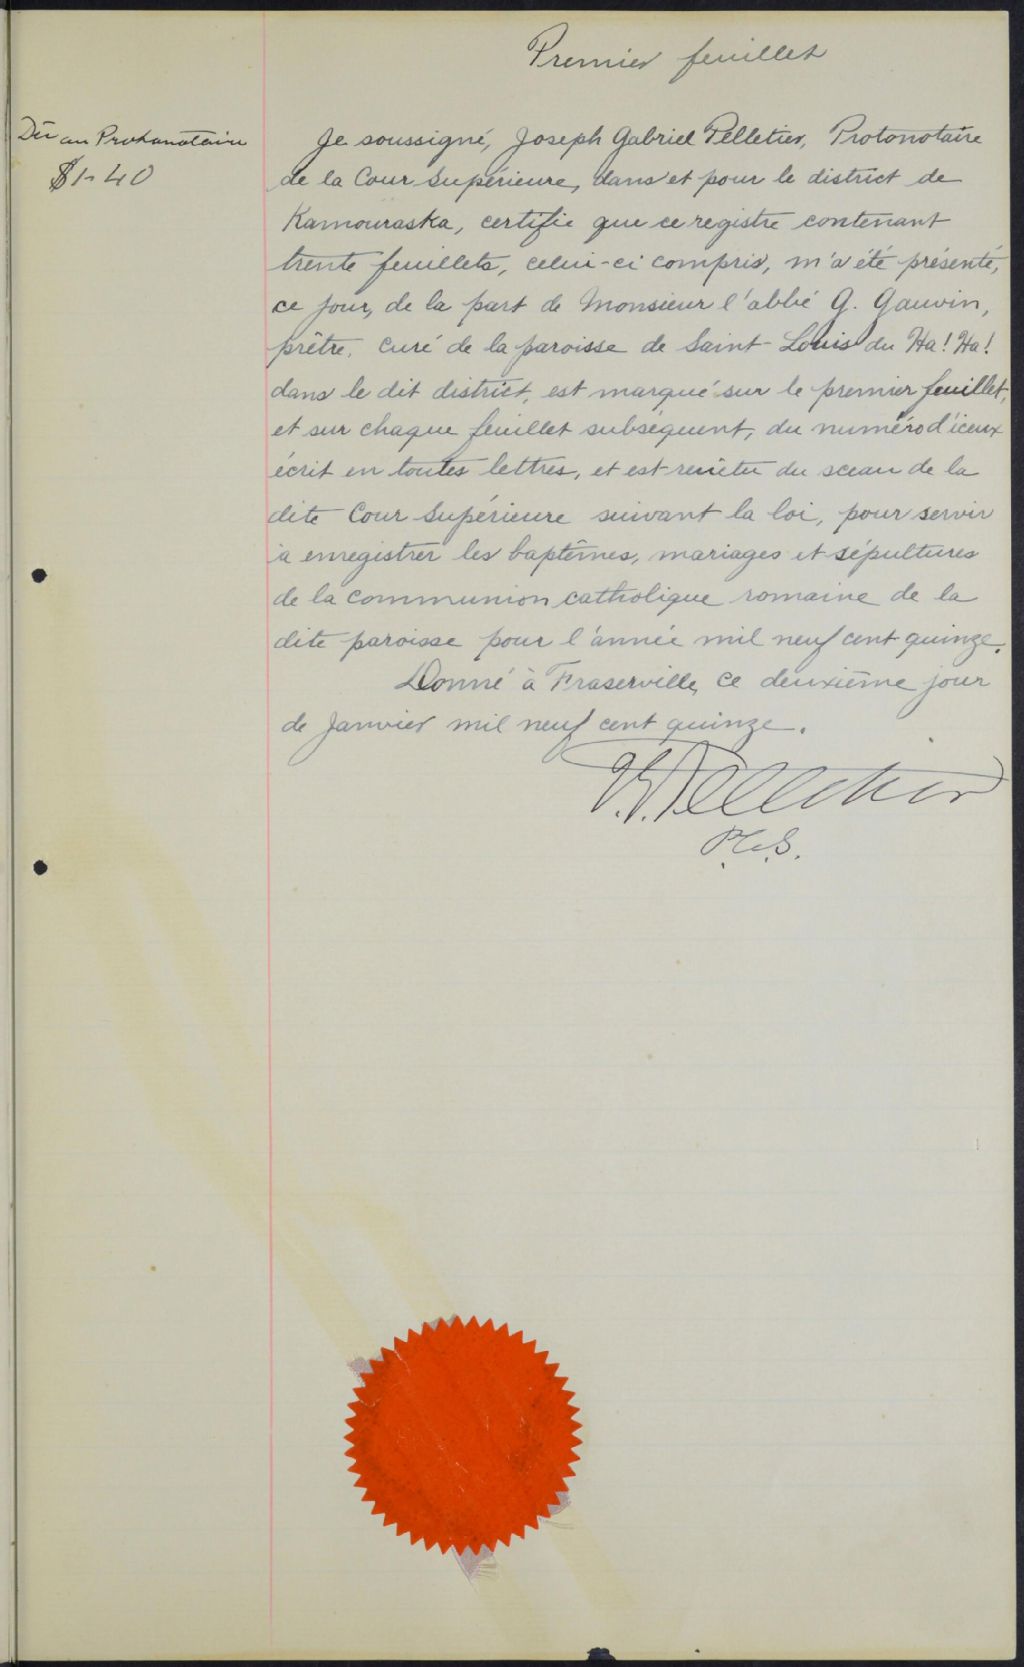 Premier feuillet
Dû au Protonotaire
$1-40
Je soussigné, Joseph Gabriel Pelletier, Protonotaire
de la Cour Supérieure, dans et pour le district de
Kamouraska, certifie que ce registre contenant
trente feuillets, celui-ci compris, m'a été présenté,
ce jour, de la part de Monsieur l'abbé G. Gauvin,
prêtre, curé de la paroisse de Saint-Louis du Ha! Ha!
dans le dit district, est marqué sur le premier feuillet,
et sur chaque feuillet subséquent, du numéro d'iceux
écrit en toutes lettres, et est revêtu du sceau de la
dite Cour Supérieure suivant la loi, pour servir
à enregistrer les baptêmes, mariages et sépultures
de la communion catholique romaine de la
dite paroisse pour l'année mil neuf cent quinze.
Donné à Fraserville, ce deuxième jour
de Janvier mil neuf cent quinze.
J.G. Pelletier
P.C.S.